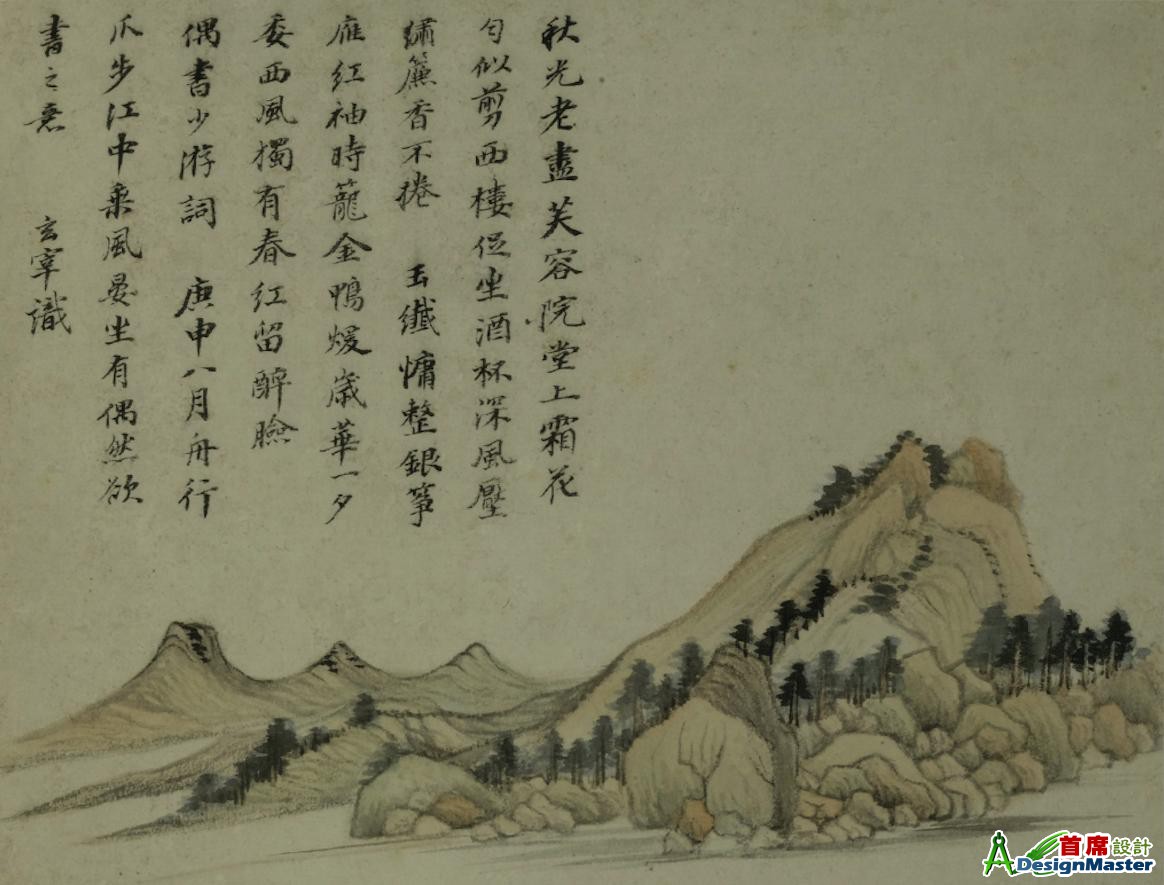 秋光老盡芙容院堂上霜花
勻似剪西樓促坐酒杯深風壓
繡簾香不捲　玉纖慵整銀箏
雁紅袖時籠金鴨煖歲華一夕
委西風獨有春紅留醉臉
偶書少游詞　庚申八月舟行
爪步江中乘風晏坐有偶然欲
書之意　玄宰識
首席設計
DesignMaster